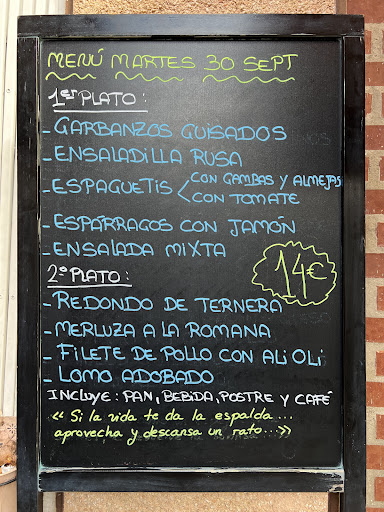 MENÚ MARTES 30 SEPT
1er PLATO:
- GARBANZOS GUISADOS
- ENSALADILLA RUSA
- ESPAGUETIS < CON GAMBAS Y ALMEJAS
CON TOMATE
- ESPÁRRAGOS CON JAMÓN
- ENSALADA MIXTA
14€
2º PLATO:
- REDONDO DE TERNERA
- MERLUZA A LA ROMANA
- FILETE DE POLLO CON ALI OLI
- LOMO ADOBADO
INCLUYE: PAN, BEBIDA, POSTRE Y CAFÉ
« Si la vida te da la espalda...
aprovecha y descansa un rato...»